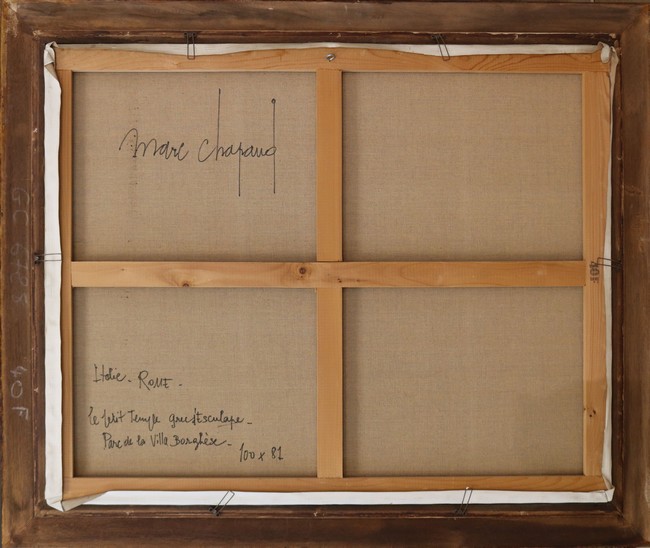 Marc Chapaud
Italie - ROME -
Le petit Temple grec d'Esculape -
Parc de la Villa Borghèse -
100 x 81
40F
40F